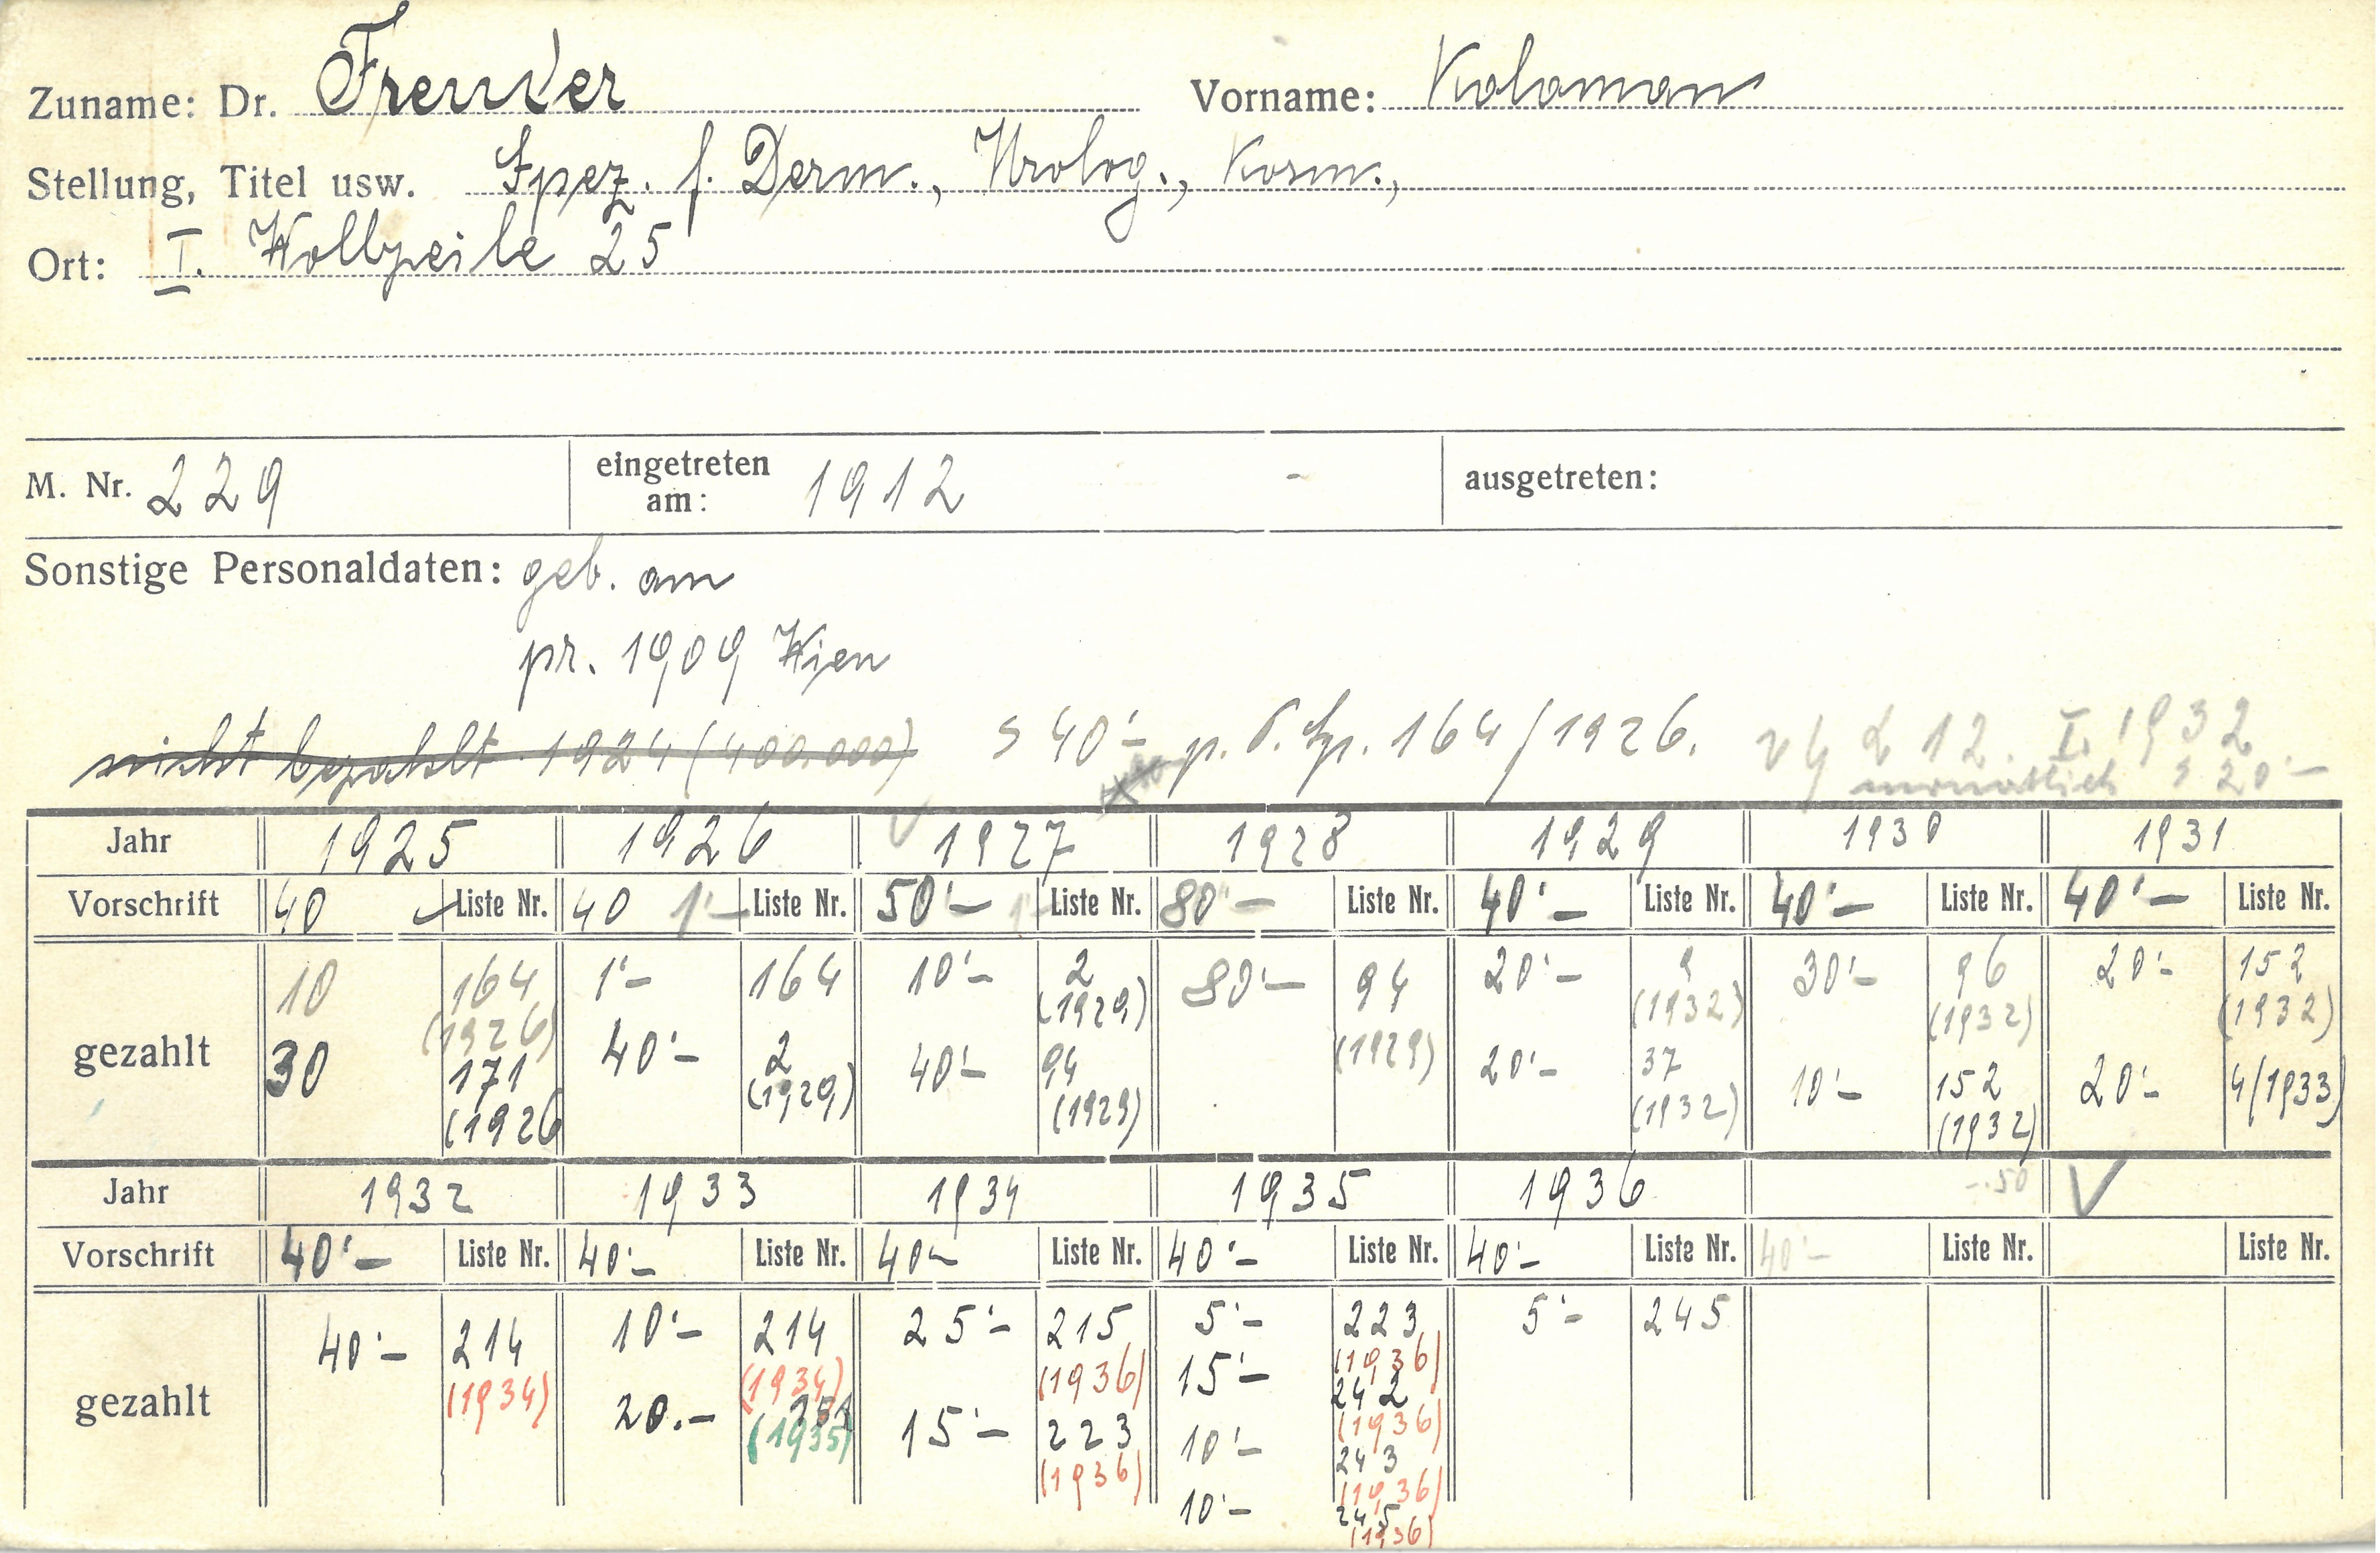 Zuname: Dr. Freuder Vorname: Koloman
Stellung, Titel usw. Spez. f. Derm., Urolog., Kosm.,
Ort: I. Wollzeile 25
M. Nr. 229 eingetreten am: 1912 - ausgetreten:
Sonstige Personaldaten: geb. am
pr. 1909 Wien
nicht bezahlt 1924 (400.000) S 40'- p. 164/1926. 12. I. 1932
monatlich S 20'-
Jahr 1925 1926 1927 1928 1929 1930 1931
Vorschrift 40 Liste Nr. 40 1'- Liste Nr. 50'- 1'- Liste Nr. 80'- Liste Nr. 40'- Liste Nr. 40'- Liste Nr. 40'- Liste Nr.
gezahlt 10 164 1'- 164 10'- 2 80'- 94 20'- 9 30'- 96 20'- 152
(1926) (1929) (1929) (1932) (1932) (1932)
30 171 40'- 2 40'- 94 20'- 37 10'- 152 20'- 4/(1933)
(1926 (1929) (1929) (1932) (1932)
Jahr 1932 1933 1934 1935 1936 -.50
Vorschrift 40'- Liste Nr. 40'- Liste Nr. 40- Liste Nr. 40'- Liste Nr. 40'- Liste Nr. 40'- Liste Nr. Liste Nr.
gezahlt 40'- 214 10'- 214 25'- 215 5'- 223 5'- 245
(1934) (1934) (1936) (1936)
15'- 242
(1936)
20.- (1935) 15'- 223 10'- 243
(1936) (1936)
10'- 245
(1936)